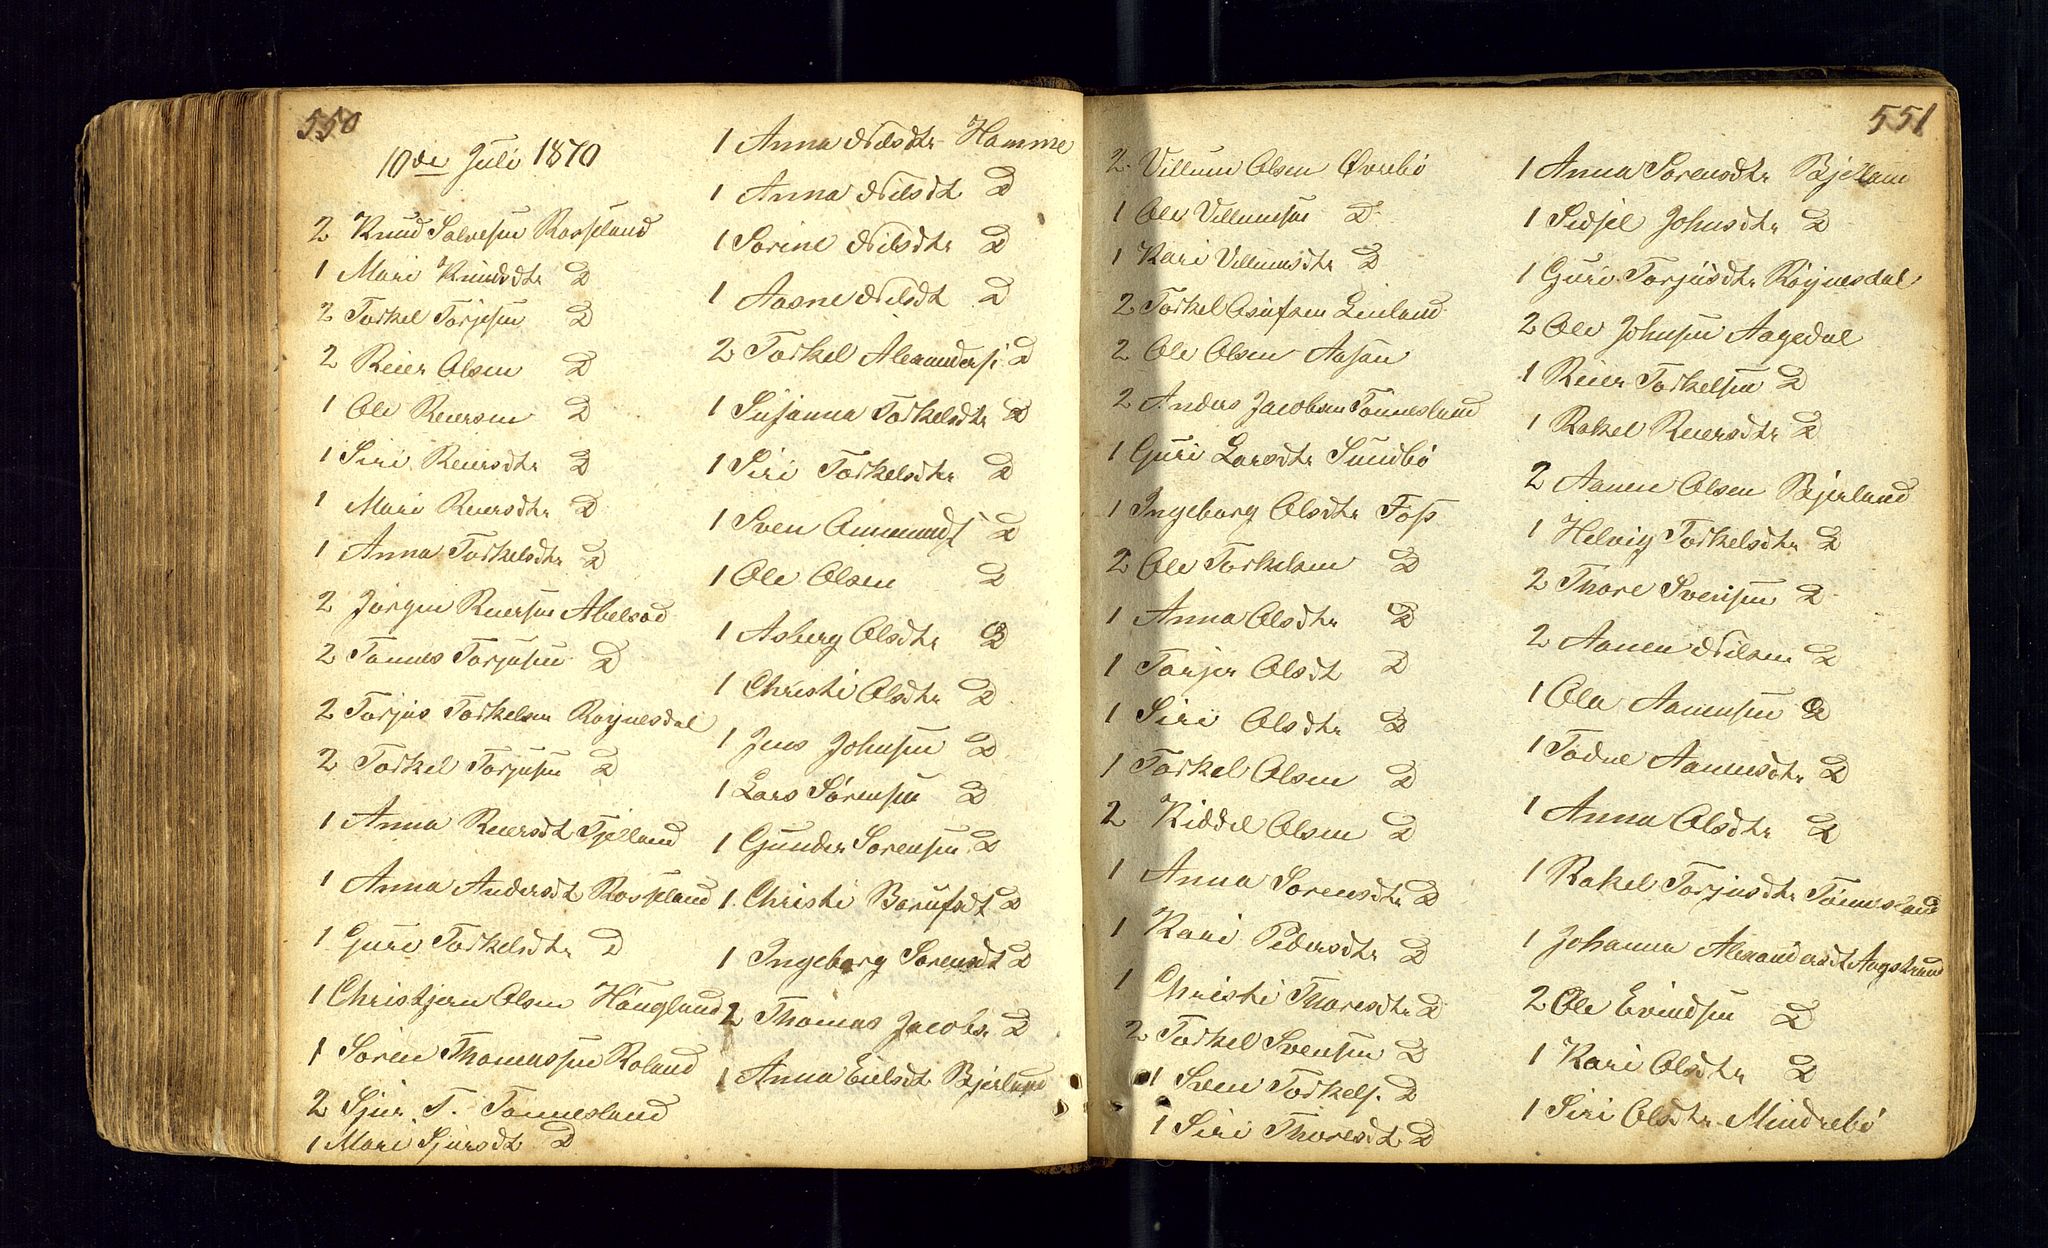 550
10de Juli 1870
2 Knud Salvesen Rosseland
1 Mari Knudsdtr D
2 Torkel Torjesen D
2 Reier Olsen D
1 Ole Reiersen D
1 Siri Reiersdtr D
1 Mari Reiersdtr D
1 Anna Torkelsdtr D
2 Jörgen Reiersen Abelsad
2 Tönnes Torjusen D
2 Torjus Torkelsen Röynesdal
2 Torkel Torjusen D
1 Anna Reiersdt Fjelland
1 Anna Andersdt Rosseland
1 Guri Torkelsdtr D
1 Christjern Olsen Haugland
1 Sören Thomassen Roland
2 Sjur T. Tönnesland
1 Mari Sjursdt D
1 Anna Nilsdtr Homme
1 Anna Nilsdt D
1 Sorine Nilsdtr D
1 Aasne Nilsdt D
2 Torkel Alexanders. D
1 Susanna Torkelsdtr D
1 Siri Torkelsdtr D
1 Sven Ommunds. D
1 Ole Olsen D
1 Asberg Olsdtr D
1 Christi Olsdtr D
1 Jens Johnsen D
1 Lars Sörensen D
1 Gunder Sörensen D
1 Christi Borufsdt D
1 Ingeborg Sörensdt D
2 Thomas Jacobs. D
1 Anna Eielsdt Bjerland
551
2 Villum Olsen Øvrebö
1 Ole Villumsen D
1 Kari Villumsdtr D
2 Torkel Asulfsen Linland
2 Ole Olsen Aasan
2 Anders Jacobsen Tönnesland
1 Guri Larsdtr Sundbö
1 Ingeborg Olsdtr Foss
2 Ole Torkelsen D
1 Anna Olsdtr D
1 Torjer Olsdt D
1 Siri Olsdtr D
1 Torkel Olsen D
2 Kiddel Olsen D
1 Anna Sörensdtr D
1 Kari Pedersdtr D
1 Christi Thoresdtr D
2 Torkel Svensen D
1 Sven Torkels. D
1 Siri Thoresdt D
1 Anna Sörensdtr Bjelland
1 Sidsel Johnsdtr D
1 Guri Torjusdtr Röynesdal
2 Ole Johnsen Aagedal
1 Reier Torkelsen D
1 Rakel Reiersdtr D
2 Aanen Olsen Bjerland
1 Helvig Torkelsdtr D
2 Thore Svensen D
2 Aanen Nilsen D
1 Ola Aanensen D
1 Todne Aanensdtr D
1 Anna Olsdtr D
1 Rakel Torjusdtr Tönnesland
1 Johanna Alexandersdt Augstand
2 Ole Evindsen D
1 Kari Olsdtr D
1 Siri Olsdtr Mindrebö